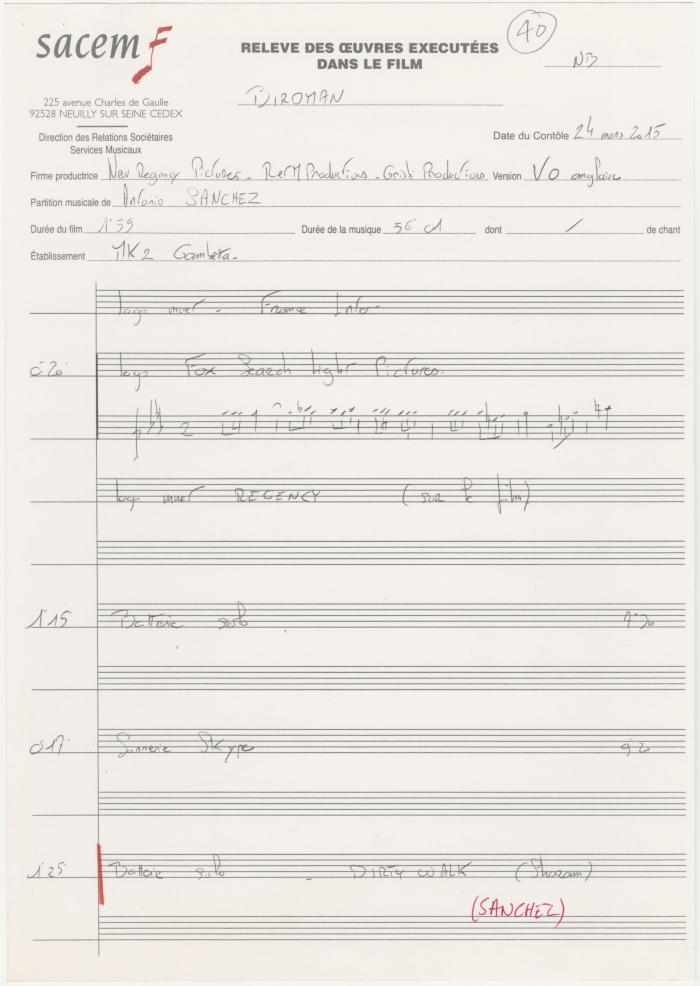 sacem
RELEVE DES ŒUVRES EXECUTÉES
DANS LE FILM
40
NB
BIRDMAN
225 avenue Charles de Gaulle
92528 NEUILLY SUR SEINE CEDEX
Direction des Relations Sociétaires
Services Musicaux
Date du Contôle 24 mars 2015
Firme productrice New Regency Pictures - RetM Productions - Grisbi Productions Version VO anglaise
Partition musicale de Antonio SANCHEZ
Durée du film 1°59 Durée de la musique 56' dont / de chant
Établissement MK2 Gambetta
logo muet - France Info
0'20 logo Fox Search Light Pictures.
2
logo muet REGENCY (sur le film)
1'15 Batterie solo
0'17 Sonnerie Skype
1'25 Batterie solo - DIRTY WALK (Shazam)
(SANCHEZ)